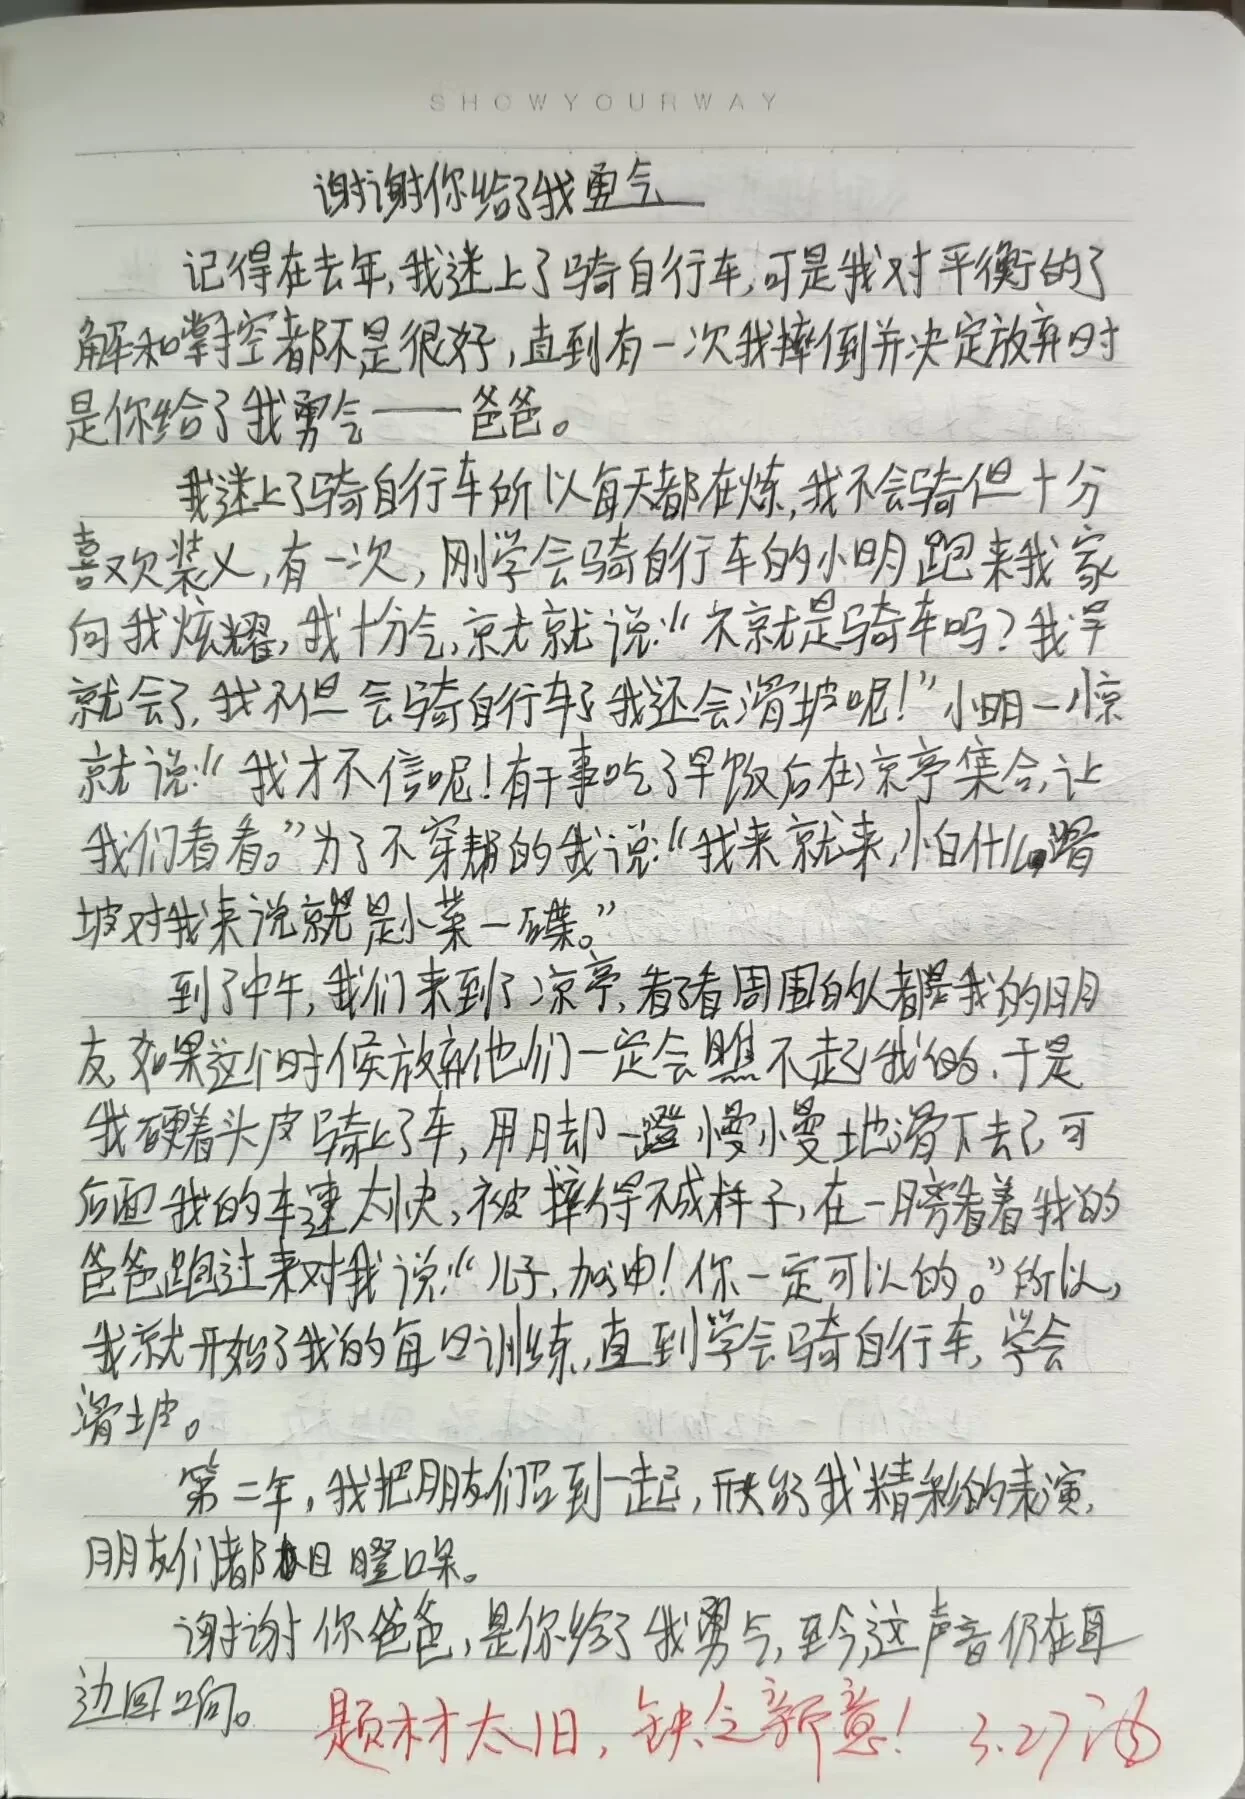 SHOWYOURWAY
谢谢你给了我勇气
记得在去年,我迷上了骑自行车,可是我对平衡的了
解和掌控都不是很好,直到有一次我摔倒并决定放弃时
是你给了我勇气——爸爸。
我迷上了骑自行车所以每天都在炼,我不会骑但十分
喜欢装乂,有一次,刚学会骑自行车的小明跑来我家
向我炫耀,我十分气,就说:“不就是骑车吗?我学
就会了,我不但会骑自行车了我还会滑坡呢!”小明一惊
就说:“我才不信呢!有干事吃了早饭后在凉亭集合,让
我们看看。”为了不穿帮的我说:“我来就来,小白什么滑
坡对我来说就是小菜一碟。”
到了中午,我们来到了凉亭,看了看周围的人都是我的朋
友,如果这个时候放弃他们一定会瞧不起我的,于是
我硬着头皮骑上了车,用脚一蹬慢慢地滑下去了可
后面我的车速太快,被摔得不成样子,在一膀看着我的
爸爸跑过来对我说:“儿子,加油!你一定可以的。”所以,
我就开始了我的每日训练,直到学会骑自行车,学会
滑坡。
第二年,我把朋友们召到一起,献给了我精彩的表演,
朋友们都目瞪口呆。
谢谢你爸爸,是你给了我勇气,至今这声音仍在耳
边回响。
题材太旧,缺乏新意! 3.27